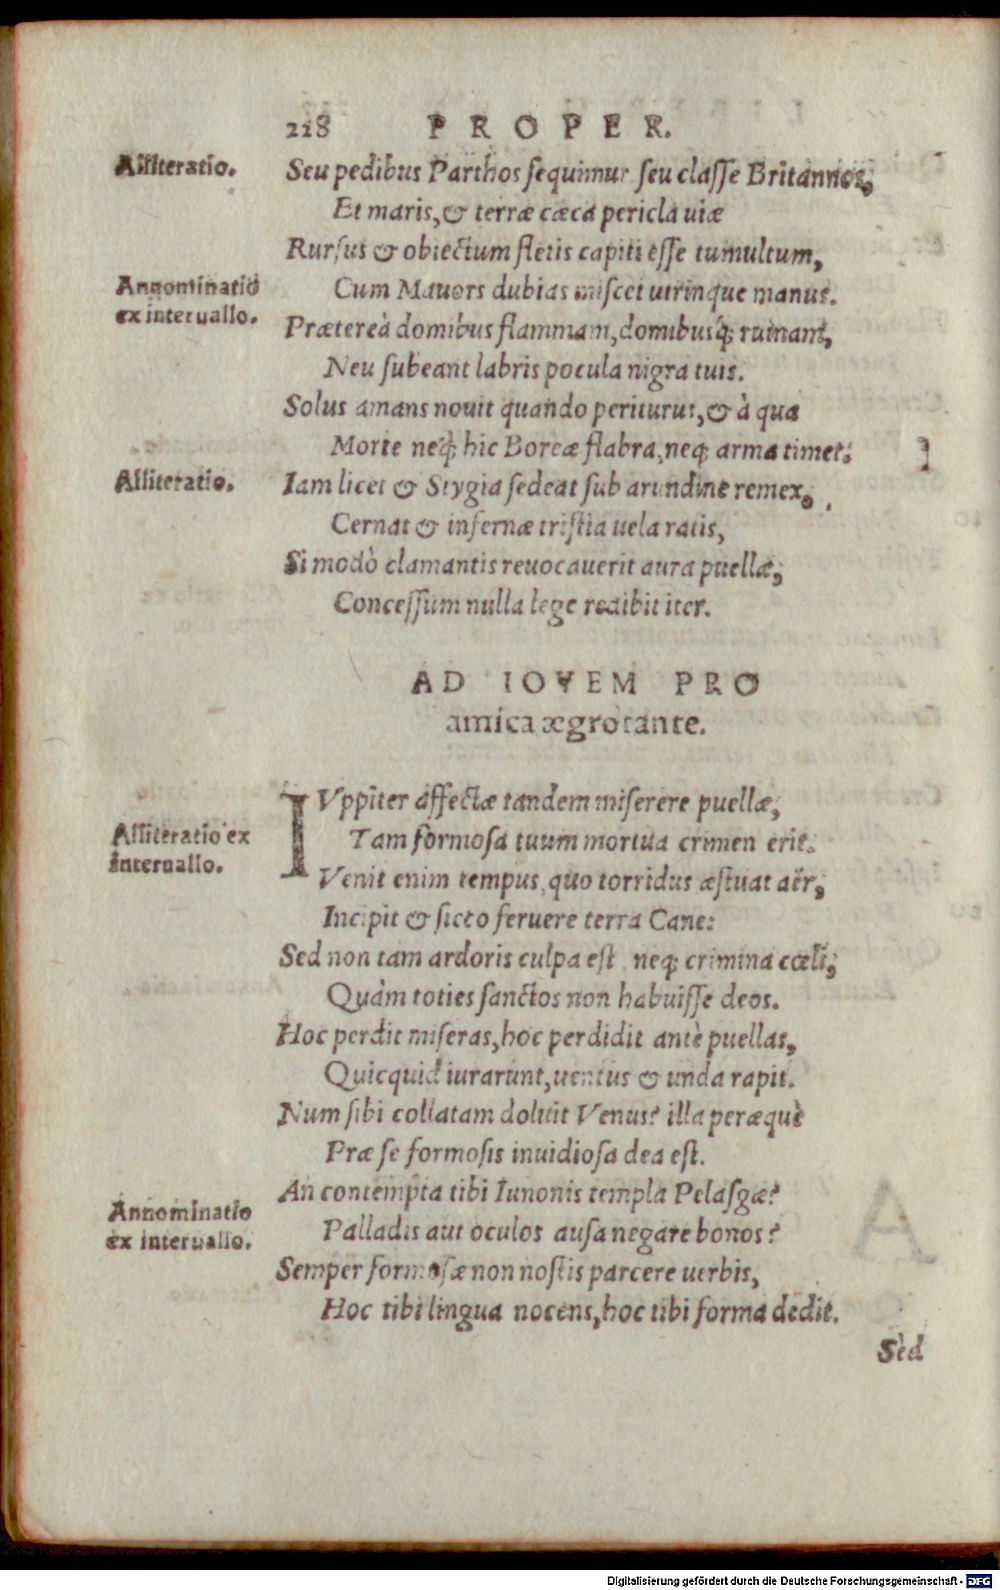 218 PROPER.
Alliteratio.
Seu pedibus Parthos sequimur seu classe Britannos,
Et maris, & terræ cæca pericla uiæ
Rursus & obiectum fletis capiti esse tumultum,
Annominatio
ex interuallo.
Cum Mauors dubias miscet utrinque manus.
Prætereà domibus flammam, domibusq́; ruinam,
Neu subeant labris pocula nigra tuis.
Solus amans nouit quando periturus, & à qua
Morte neq́; hic Boreæ flabra, neq; arma timet.
Alliteratio.
Iam licet & Stygia sedeat sub arundine remex,
Cernat & infernæ tristia uela ratis,
Si modò clamantis reuocauerit aura puellæ,
Concessum nulla lege redibit iter.
AD IOVEM PRO
amica ægrotante.
IVppiter affectæ tandem miserere puellæ,
Alliteratio ex
interuallo.
Tam formosa tuum mortua crimen erit.
Venit enim tempus, quo torridus æstuat aër,
Incipit & sicco feruere terra Cane:
Sed non tam ardoris culpa est neq; crimina cœli,
Quàm toties sanctos non habuisse deos.
Hoc perdit miseras, hoc perdidit antè puellas,
Quicquid iurarunt, uentus & unda rapit.
Num sibi collatam doluit Venus? illa peræquè
Præ se formosis inuidiosa dea est.
An contempta tibi Iunonis templa Pelasgæ?
Annominatio
ex interuallo.
Palladis aut oculos ausa negare bonos?
Semper formosæ non nostis parcere uerbis,
Hoc tibi lingua nocens, hoc tibi forma dedit.
Sed
Digitalisierung gefördert durch die Deutsche Forschungsgemeinschaft - DFG